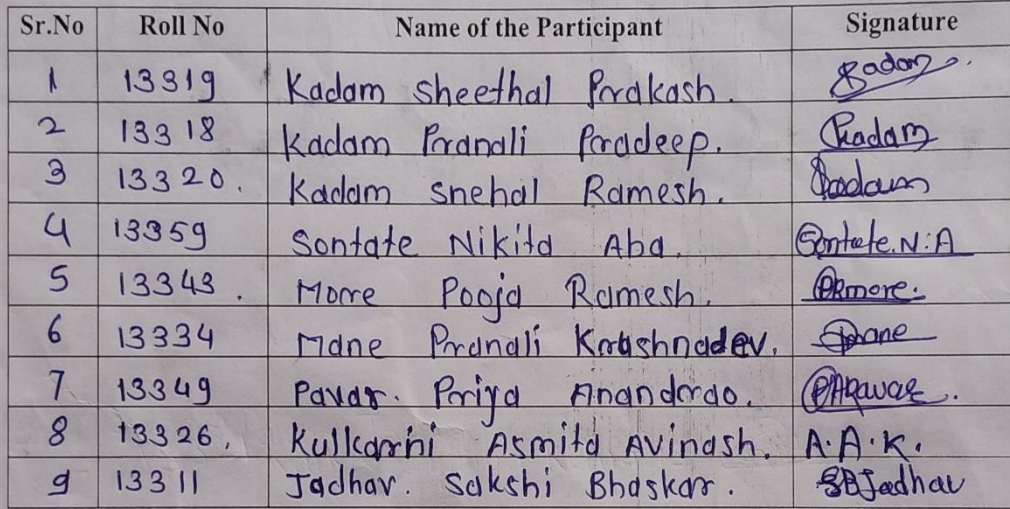 Sr.No Roll No Name of the Participant Signature
1 13319 Kadam Sheethal Prakash. Kadam.
2 13318 Kadam Pranali Pradeep. Kadam
3 13320. Kadam snehal Ramesh. Kadam
4 13359 Sontate Nikita Aba. Sontate.N.A
5 13343. More Pooja Ramesh. PRmore.
6 13334 Mane Pranali Krushnadev. Pmane
7 13349 Pavar. Priya Anandrao. PApavar.
8 13326. Kulkarni Asmita Avinash. A.A.K.
9 13311 Jadhav. Sakshi Bhaskar. SBJadhav